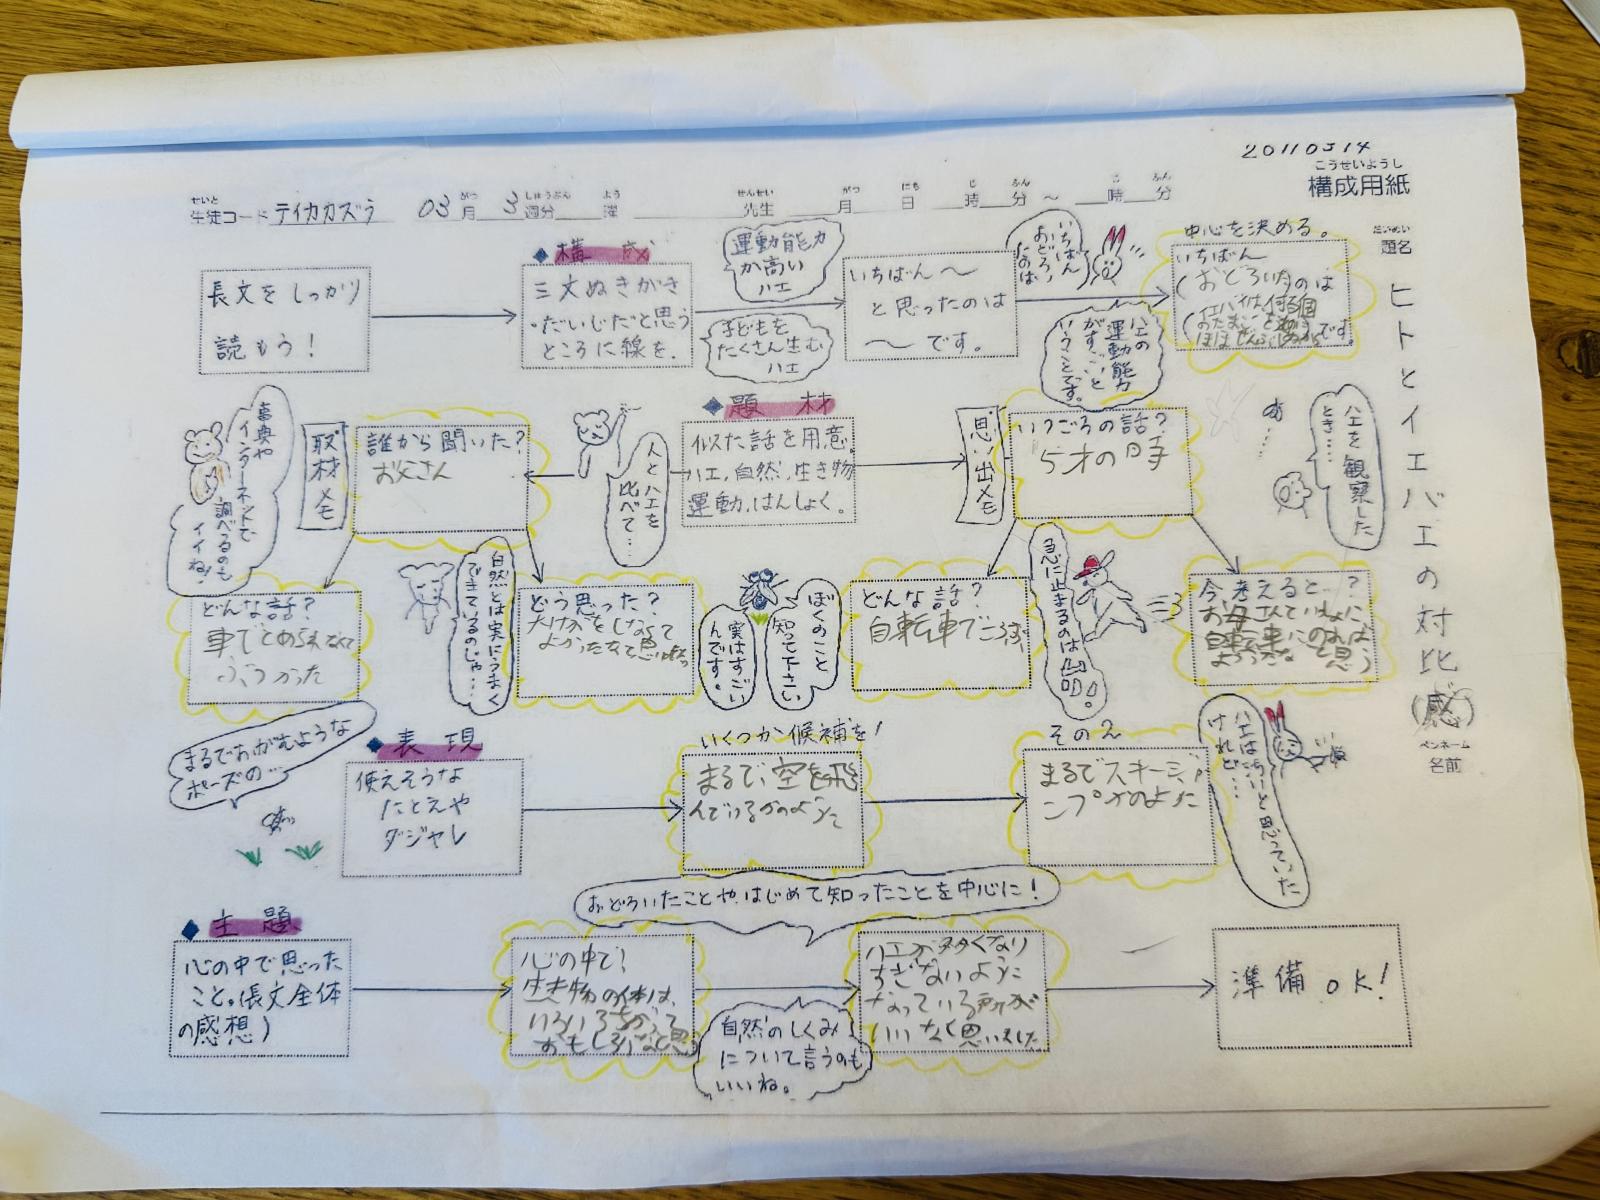 20110314
こうせいようし
構成用紙
せいと
生徒コード テイカカズラ
がつ
03月
しゅうぶん
3週分
よう
曜
せんせい
先生
がつ
月
にち
日
じ
時
ふん
分
～
じ
時
ふん
分
だいめい
題名
ヒトとイエバエの対比(感)
ペンネーム
名前
長文をしっかり
読もう!
◆構成
三文ぬきがき
・だいじだと思う
ところに線を.
運動能力
が高い
ハエ
子どもを
たくさん生む
ハエ
いちばん～
と思ったのは
～です。
いちばん
おどろい
たのは
ハエの
運動能力
がすごいと
いうことです。
中心を決める。
いちばん
(おどろいた)のは
です。
◆題材
似た話を用意。
ハエ,自然,生き物
運動,はんしょく。
人とハエを
比べて…
取材メモ
誰から聞いた?
お父さん
事典や
インターネットで
調べるのも
イイね!
どんな話?
車でとめられなくて
ぶつかった
どう思った?
大けがをしなくて
よかったなと思いました
自然とは実にうまく
できているのじゃ…
思い出メモ
いつごろの話?
5才の時
どんな話?
自転車でころぶ
急に止まるのは
今考えると…?
お母さんといっしょに
自転車にのれば
よかったなと思う
ハエを観察した
とき…
あ…
ぼくのこと
知って下さい
実はすごい
んです。
◆表現
使えそうな
たとえや
ダジャレ
まるでおがむような
ポーズの…
いくつか候補を!
まるで、空を飛
んでいるかのように
その2
まるでスキージャ
ンプかのように
けれど…
◆主題
心の中で思った
こと。(長文全体
の感想)
おどろいたことや,はじめて知ったことを中心に!
心の中で?
生き物の体は、
いろいろちがって
おもしろいなと思う
自然のしくみ
について言うのも
いいね。
ハエが多くなり
すぎないように
なっている所が
いいなと思いました
準備OK!